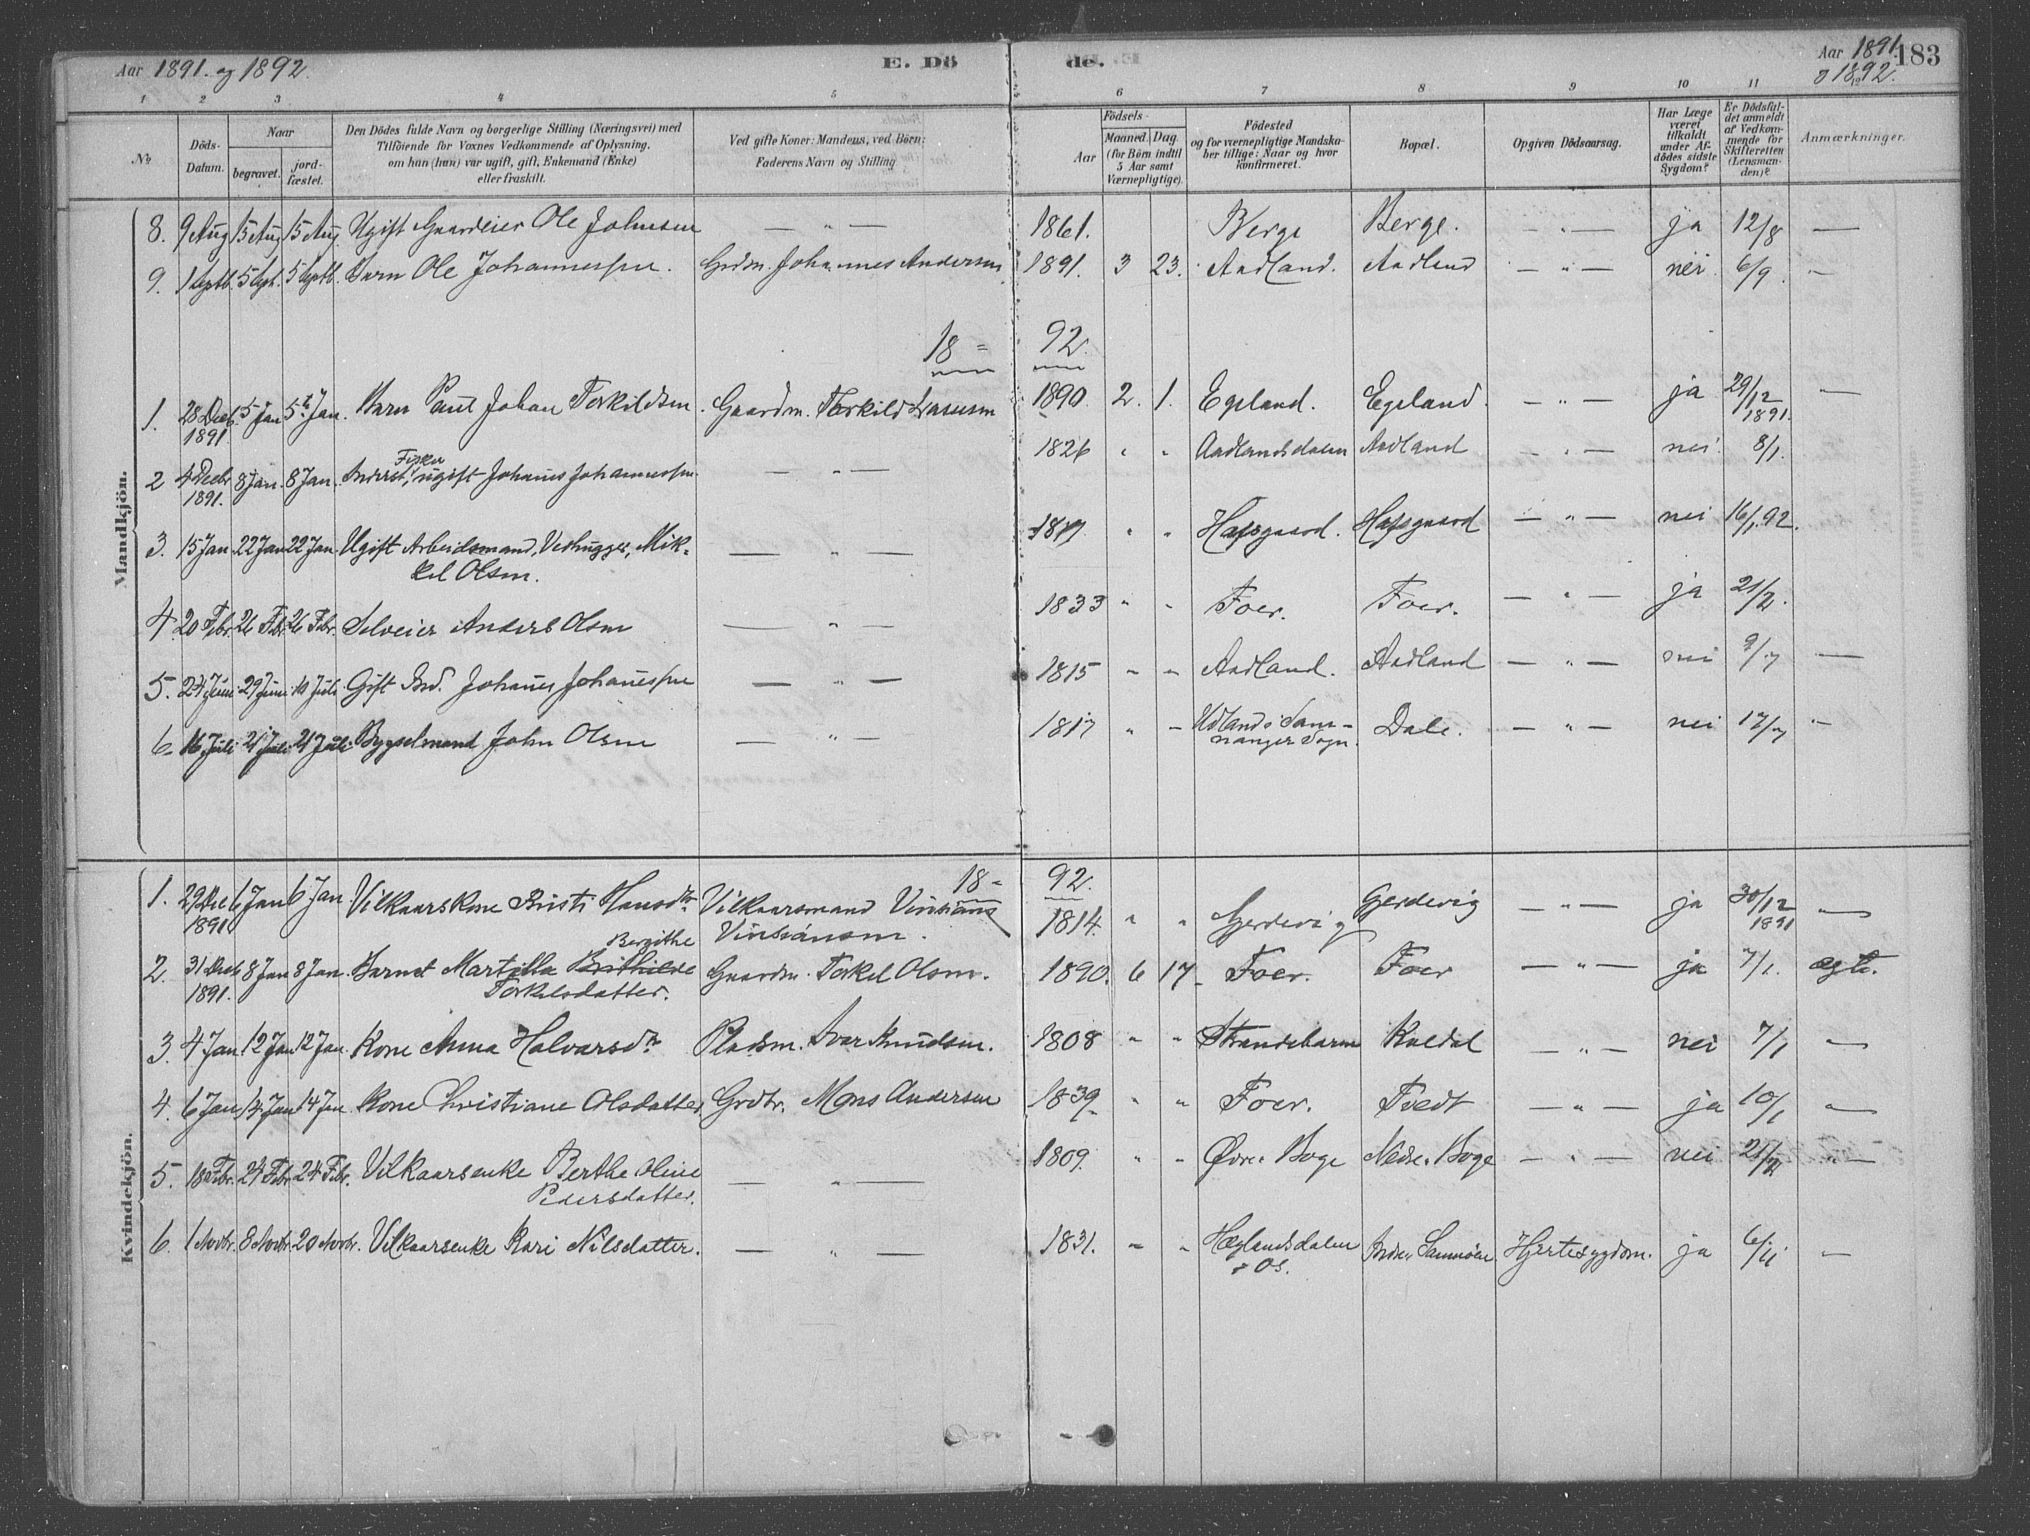 Aar 1891. og 1892.
E. Dö
de.
Aar 1891.
183
1892.
1 2 3 4 5 6 7 8 9 10 11
No
Döds-Datum.
Naar
begravet.
jord-fæstet.
Den Dödes fulde Navn og borgerlige Stilling (Næringsvei) med
Tilföiende for Voxnes Vedkommende af Oplysning,
om han (hun) var ugift, gift, Enkemand (Enke)
eller fraskilt.
Ved gifte Koner: Mandens, ved Börn:
Faderens Navn og Stilling
Födsels-
Aar
Maaned. Dag.
(for Börn indtil
5 Aar samt
Værnepligtige).
Födested
og for værnepligtige Mandska-
ber tillige: Naar og hvor
konfirmeret.
Bopæl.
Opgiven Dödsaarsag.
Har Læge
været
tilkaldt
under Af-
dödes sidste
Sygdom?
Er Dödsfal-
det anmeldt
af Vedkom-
mende for
Skifteretten
(Lensman-
den)?
Anmærkninger.
Mandkjön.
8. 9 Aug 15 Aug 15 Aug Ugift Gaardeier Ole Johnsen — " — 1861. Berge Berge. — " — ja 12/8 —
9. 1 Septb. 5 Sept. 5 Septb. Barn Ole Johannessen. Grdm. Johannes Andersen 1891. 3 23. Aadland. Aadland — " — nei 6/9. —
18 = 92
1. 28 Decb. 5 Jan 5 Jan. Barn Paul Johan Torkildsen. Gaardm. Torkild Lassesen 1890. 2. 1. Egeland. Egeland. — " — ja 29/12 —
1891 1891.
Fisker
2 4 Decbr 8 Jan. 8 Jan. ugift Johanes Johannessen. — " — 1826 " " Aadlandsdalen Aadland — " — nei 8/1.
1891.
3. 15 Jan. 22 Jan 22 Jan. Ugift Arbeidsmand, Vedhugger, Mik- — " — " " Hafsgaard. Hafsgaard — " — nei 16/1.92.
kel Olsen.
4. 20 Febr. 26 Febr. 26 Febr. Selveier Anders Olsen — " — 1833 " " Foer. Foer. — " — ja 21/2.
5. 24 Juni 29 Juni Juli Gift Johanes Johanessen — " — 1815 " " Aadland. Aadland — " — nei 9/7 —
6. 16 Juli 21 Juli 21 Juli. Bygselmand John Olsen — " — 1817 " " Udland i Sam- Dale. — " — nei 17/7 —
nanger Sogn.
Kvindekjön.
18 = 92.
1. 29 Dec 6 Jan 6 Jan Vilkaarskone Britt Hansdtr. Vilkaarsmand Vinsiäns 1814. " " Gjerdevig Gjerdevig — " — ja 30/12 —
1891 Vinsiänsen. 1891
Bergithe
2. 31 Decb 8 Jan 8 Jan. Barnet Martilla Brithilde Gaardm. Torkel Olsen. 1890. 6 17. Foer. Foer — " — ja 7/1. ægte.
1891. Torkelsdatter.
3. 4 Jan 12 Jan 12 Jan. Kone Anna Halvarsdtr Pladsm. Ivar Knudsen. 1808 " " Strandebarm Koldal — " — nei 7/1 —
4. 6 Jan 14 Jan 14 Jan Kone Christiane Olsdatter. Grdbr. Mons Andersen 1839. " " Foer. Tvedt — " — ja 10/1 —
5. 18 Febr. 24 Febr 24 Febr. Vilkaarsenke Berthe Oline — " — 1809. " " Øvre Boge Nedre Boge — " — nei 21/2 —
Pedersdatter.
6. 1 Novbr. 8 Novbr 20 Novbr. Vilkaarsenke Kari Nilsdatter. — " — 1831. " " Hæglandsdalen Indre Samnöen Hjertesygdom. ja 6/11 —
i Os.